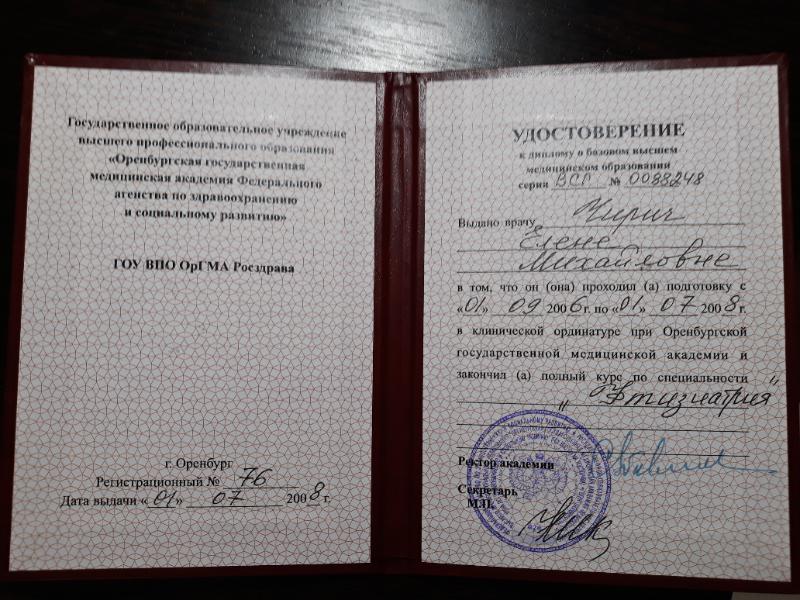 Государственное образовательное учреждение
высшего профессионального образования
«Оренбургская государственная
медицинская академия Федерального
агенства по здравоохранению
и социальному развитию»
ГОУ ВПО ОрГМА Росздрава
г. Оренбург
Регистрационный № 76
Дата выдачи «01» 07 2008 г.
УДОСТОВЕРЕНИЕ
к диплому о базовом высшем
медицинском образовании
серия ВСГ № 0088248
Выдано врачу Чирич
Елене
Михайловне
в том, что он (она) проходил (а) подготовку с
«01» 09 2006 г. по «01» 07 2008 г.
в клинической ординатуре при Оренбургской
государственной медицинской академии и
закончил (а) полный курс по специальности
"Фтизиатрия"
Ректор академии
Секретарь
М.П.